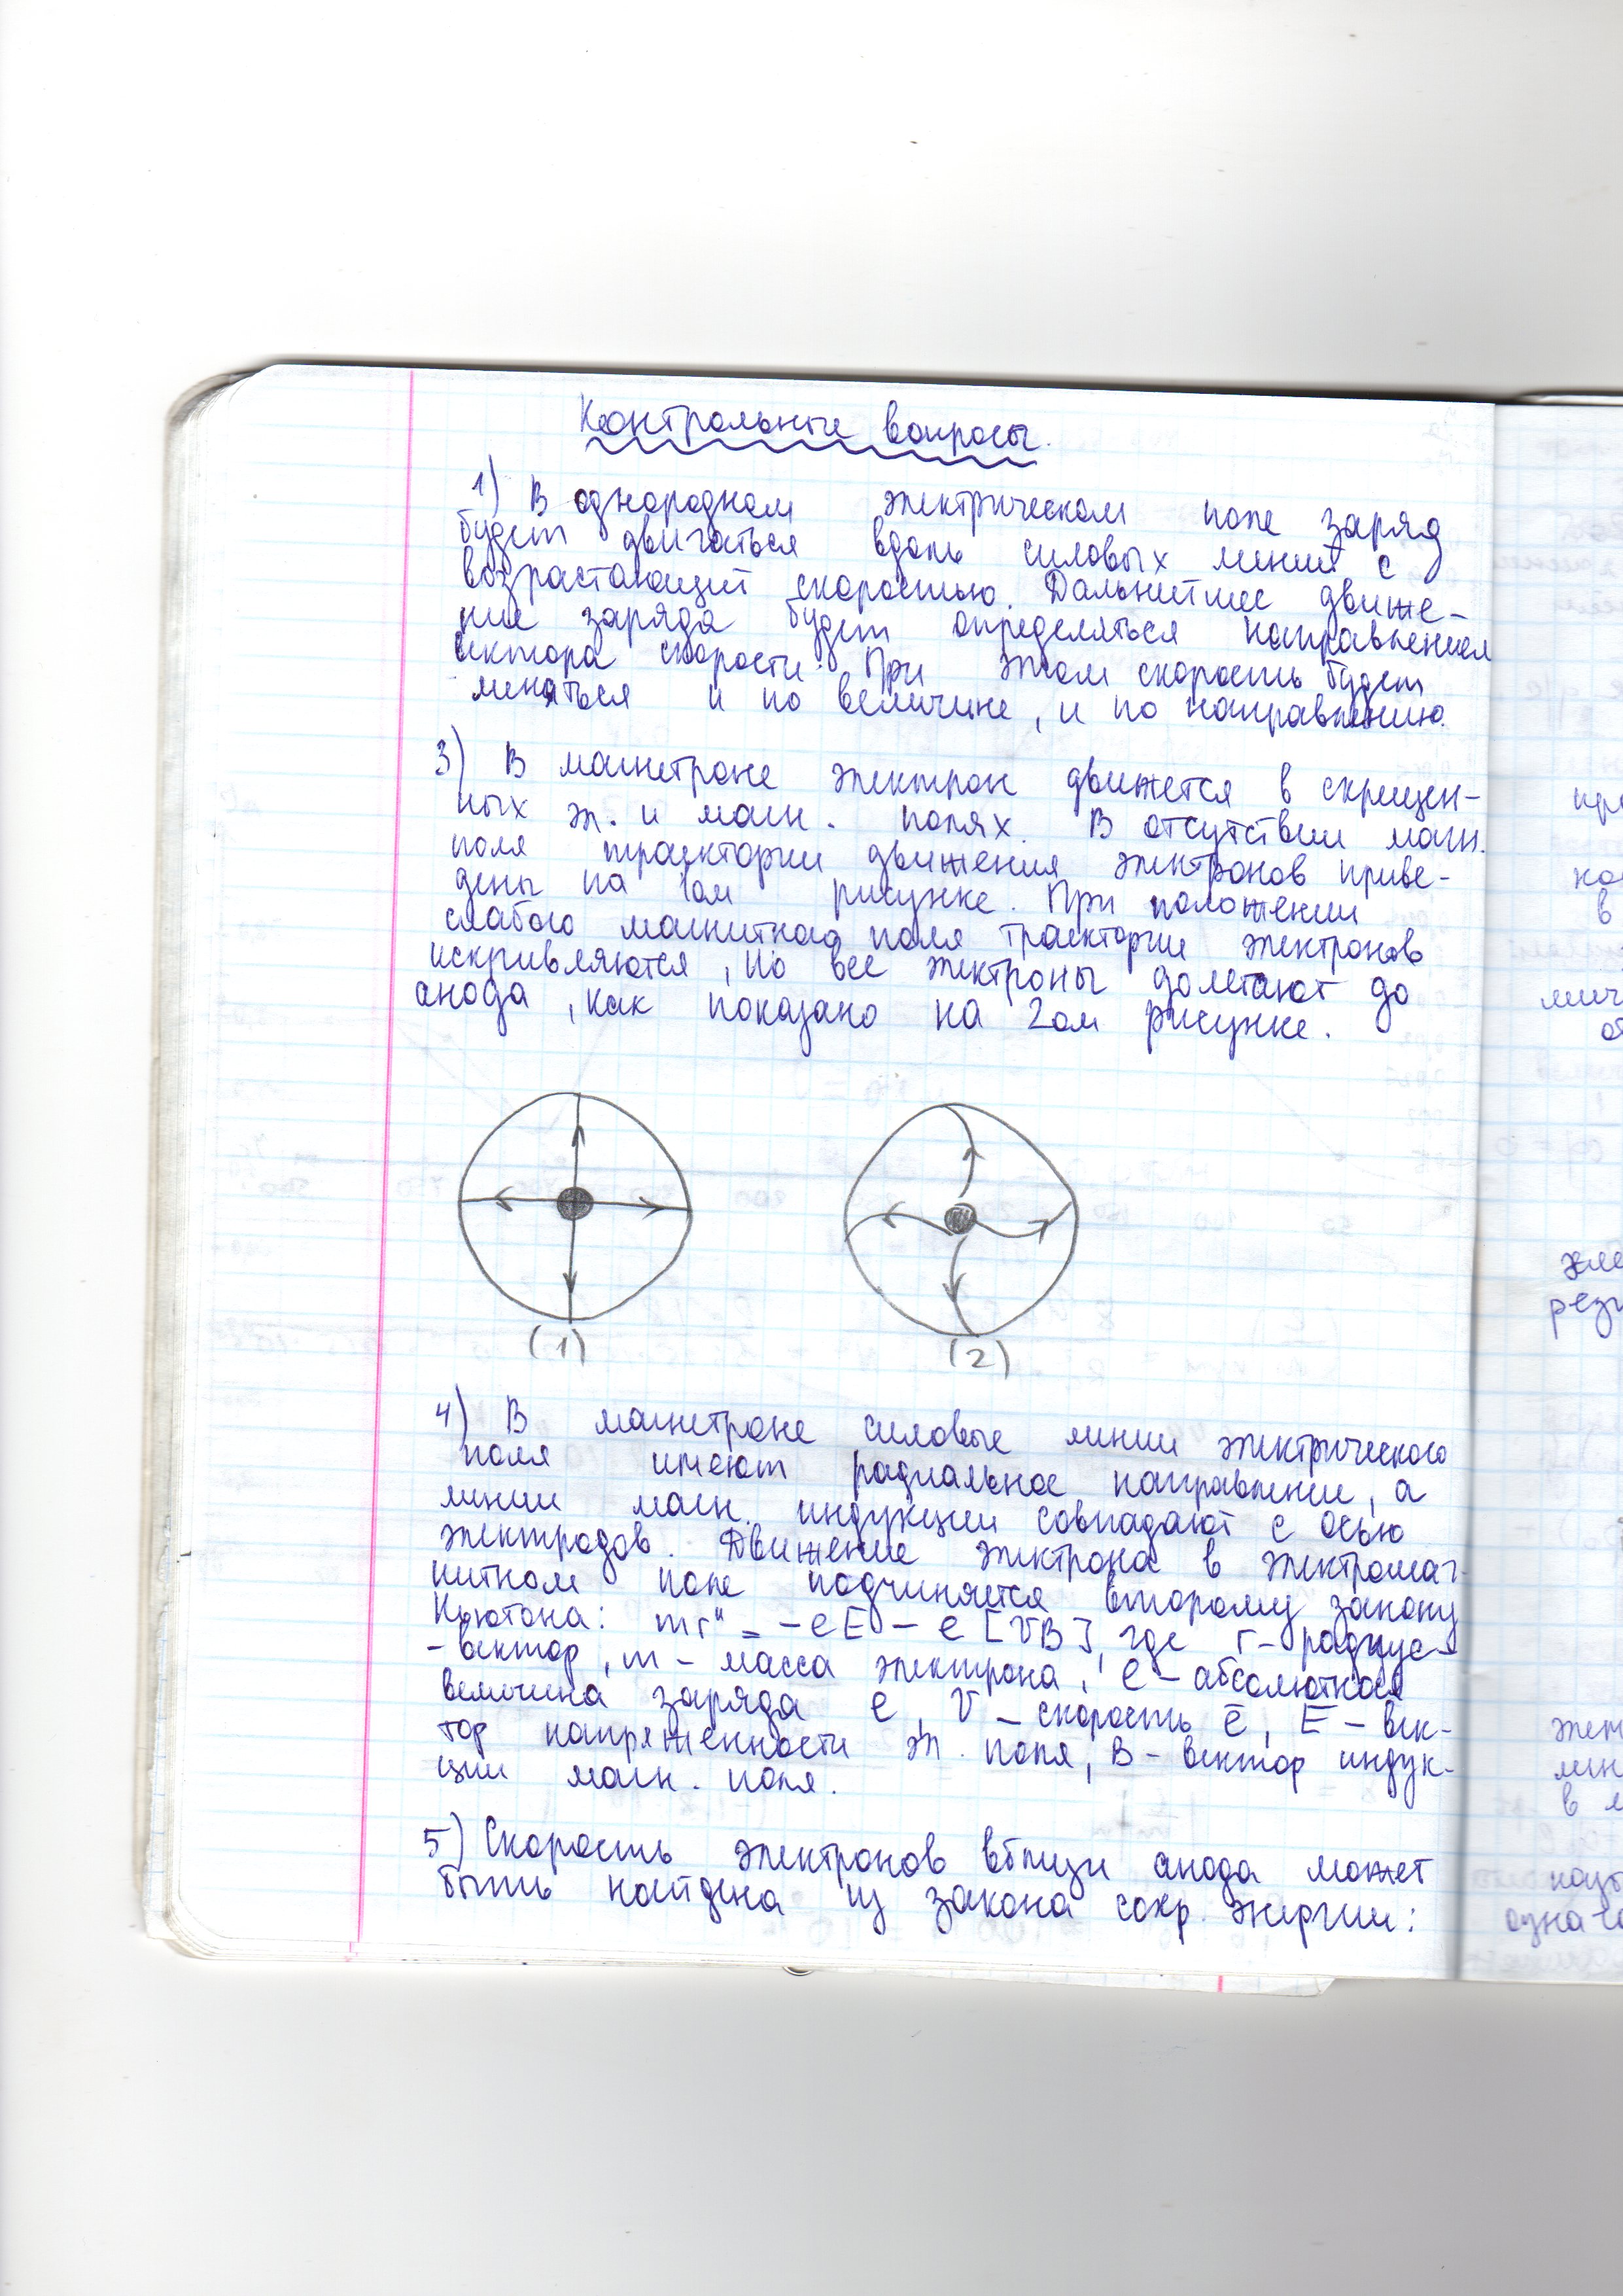 Контрольные вопросы.
1) В однородном электрическом поле заряд
будет двигаться вдоль силовых линий с
возрастающей скоростью. Дальнейшее движе-
ние заряда будет определяться направлением
вектора скорости. При этом скорость будет
меняться и по величине, и по направлению.
3) В магнетроне электрон движется в скрещен-
ных эл. и магн. полях. В отсутствии магн.
поля траектории движения электронов приве-
дены на 1ом рисунке. При положении
слабого магнитного поля траектории электронов
искривляются, но все электроны долетают до
анода, как показано на 2ом рисунке.
(1)
(2)
4) В магнетроне силовые линии электрического
поля имеют радиальное направление, а
линии магн. индукции совпадают с осью
электродов. Движение электрона в электромаг-
нитном поле подчиняется второму закону
Ньютона: mr" = -eE - e [VB], где r - радиус-
-вектор, m - масса электрона, e - абсолютная
величина заряда e, V - скорость ē, E - век-
тор напряженности эл. поля, B - вектор индук-
ции магн. поля.
5) Скорость электронов вблизи анода может
быть найдена из закона сохр. энергии: